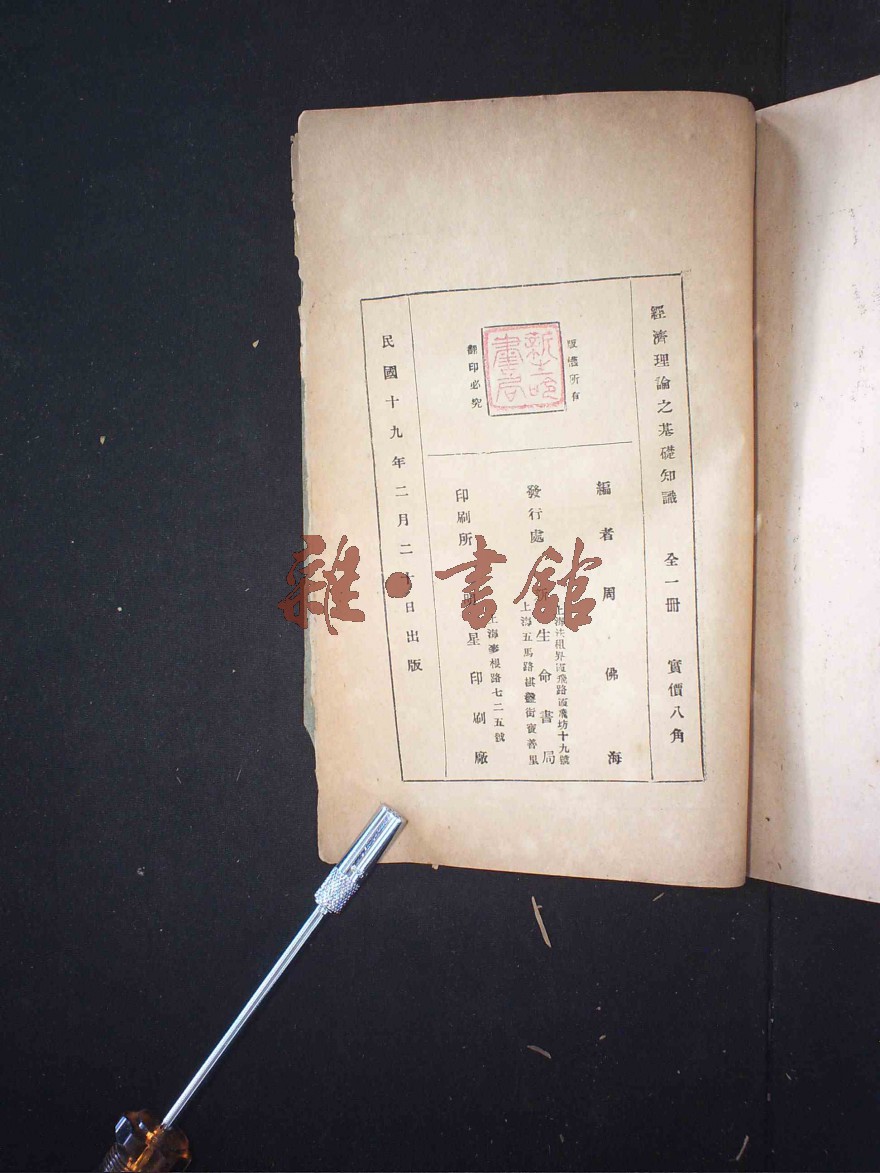 經濟理論之基礎知識 全一冊 實價八角
版權所有
新生命書局
翻印必究
編者 周佛海
上海法租界霞飛路霞飛坊十九號
發行處 生命書局
上海五馬路棋盤街寶善里
印刷所 明星印刷廠
上海麥根路七二五號
民國十九年二月二十日出版
雜·書館